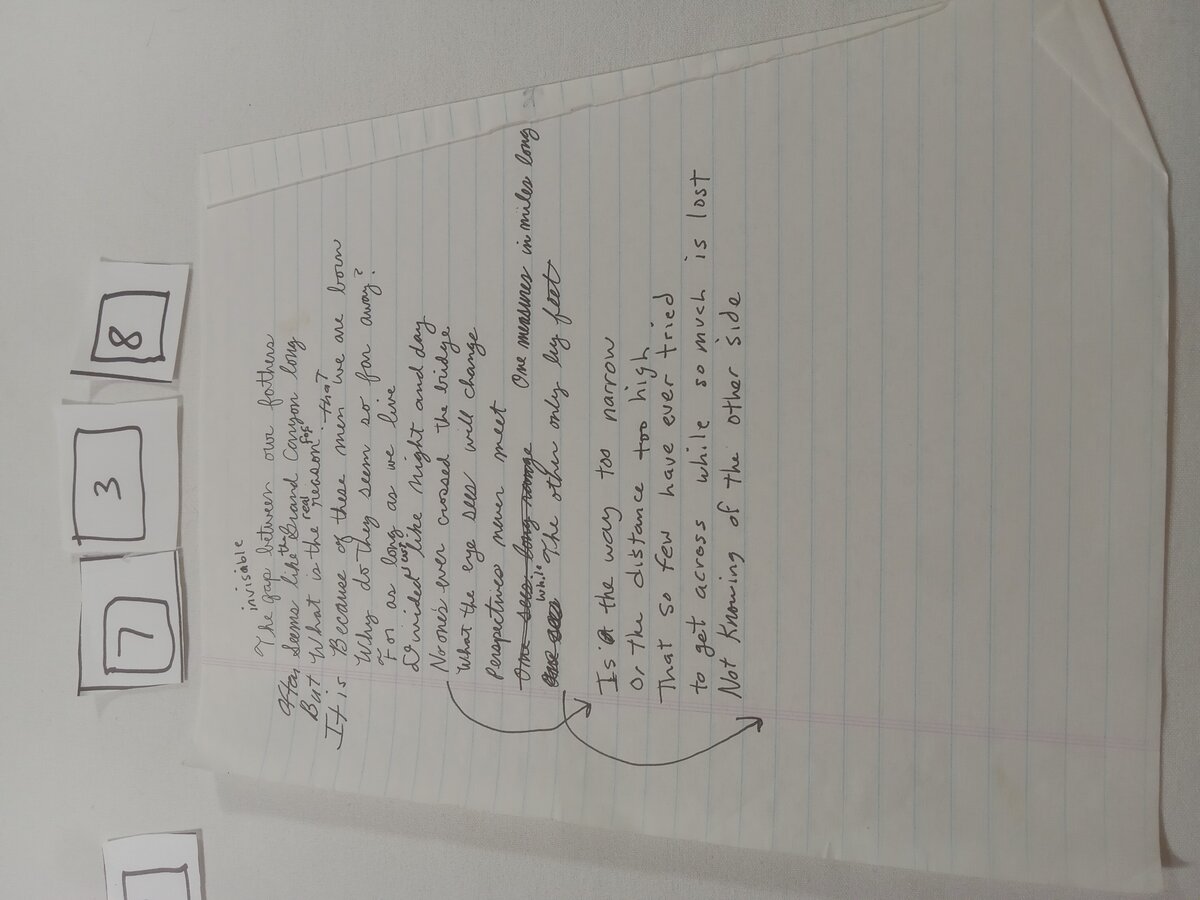 7
3
8
invisable
The gap between our fathers
Seems like the Grand Canyon long
But What is the real reason for that?
It is Because of these men we are born
Why do they seem so far away?
For as long as we live
Devided like night and day
No one's ever crossed the bridge
What the eye sees will change
Perspectives never meet
One sees long range One measures in miles long
One sees while The other only by feet
Is the way too narrow
Or the distance too high
That so few have ever tried
to get across while so much is lost
Not Knowing of the other side